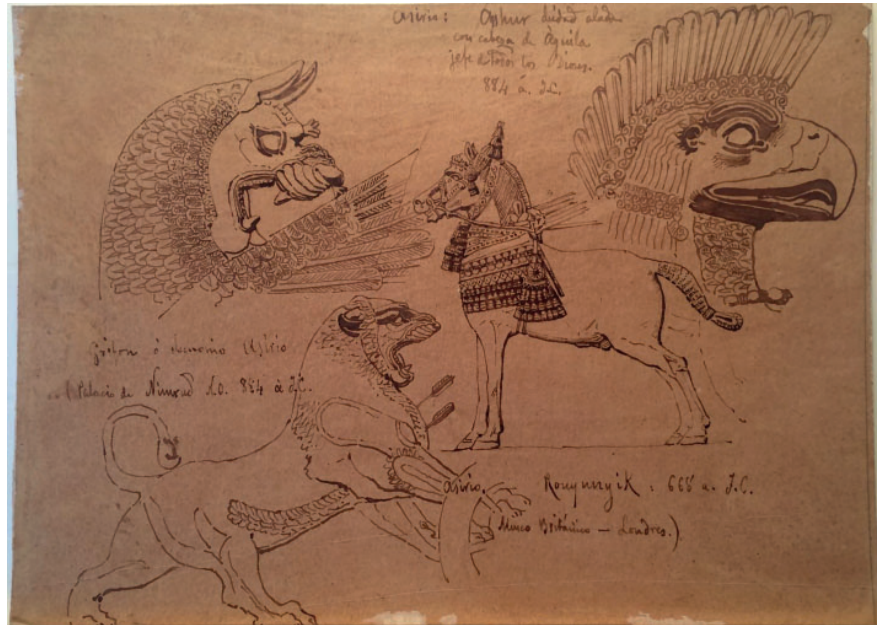 asirio: Ashur deidad alada
con cabeza de Àguila
jefe de todos los Dioses.
884 a. J.C.
Grifon ó demonio Asirio
Palacio de Nimrud 884 à J.C.
asirio. Kouyunyik: 668 a. J.C.
(Museo Británico – Londres.)